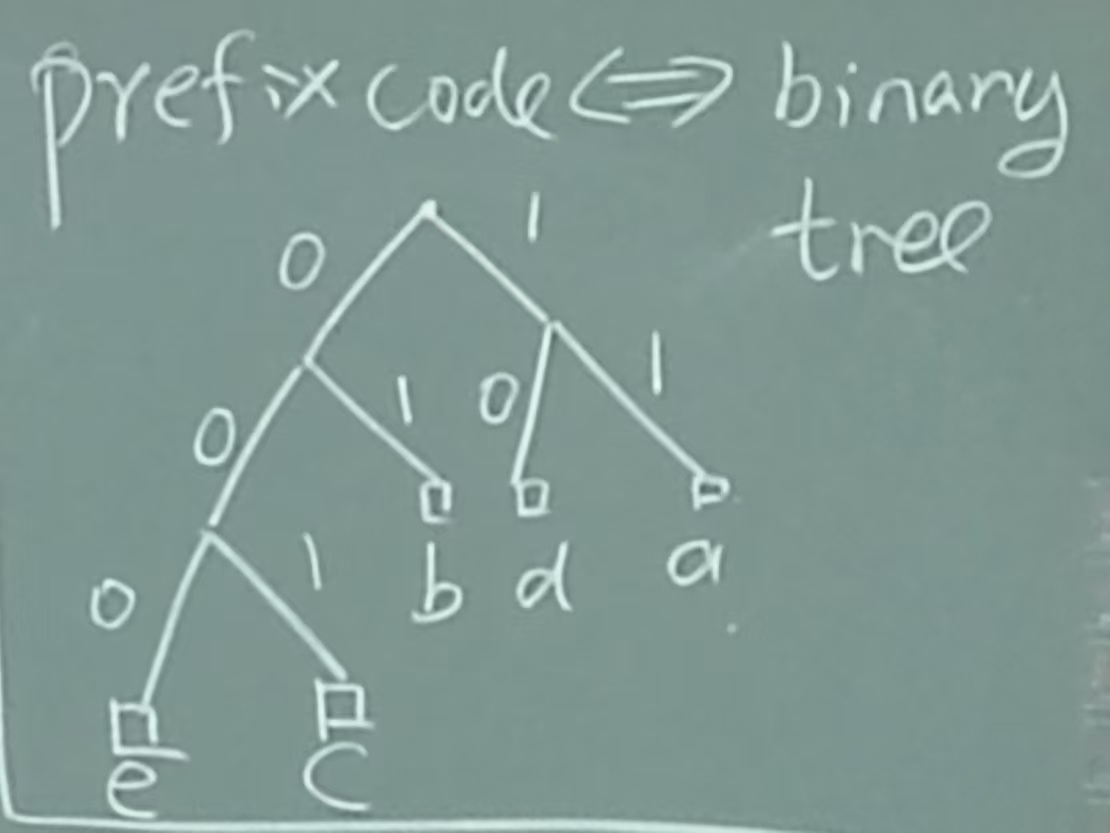 prefix code ⇔ binary
tree
0 1
0 1 0 1
0 1 b d a
e c